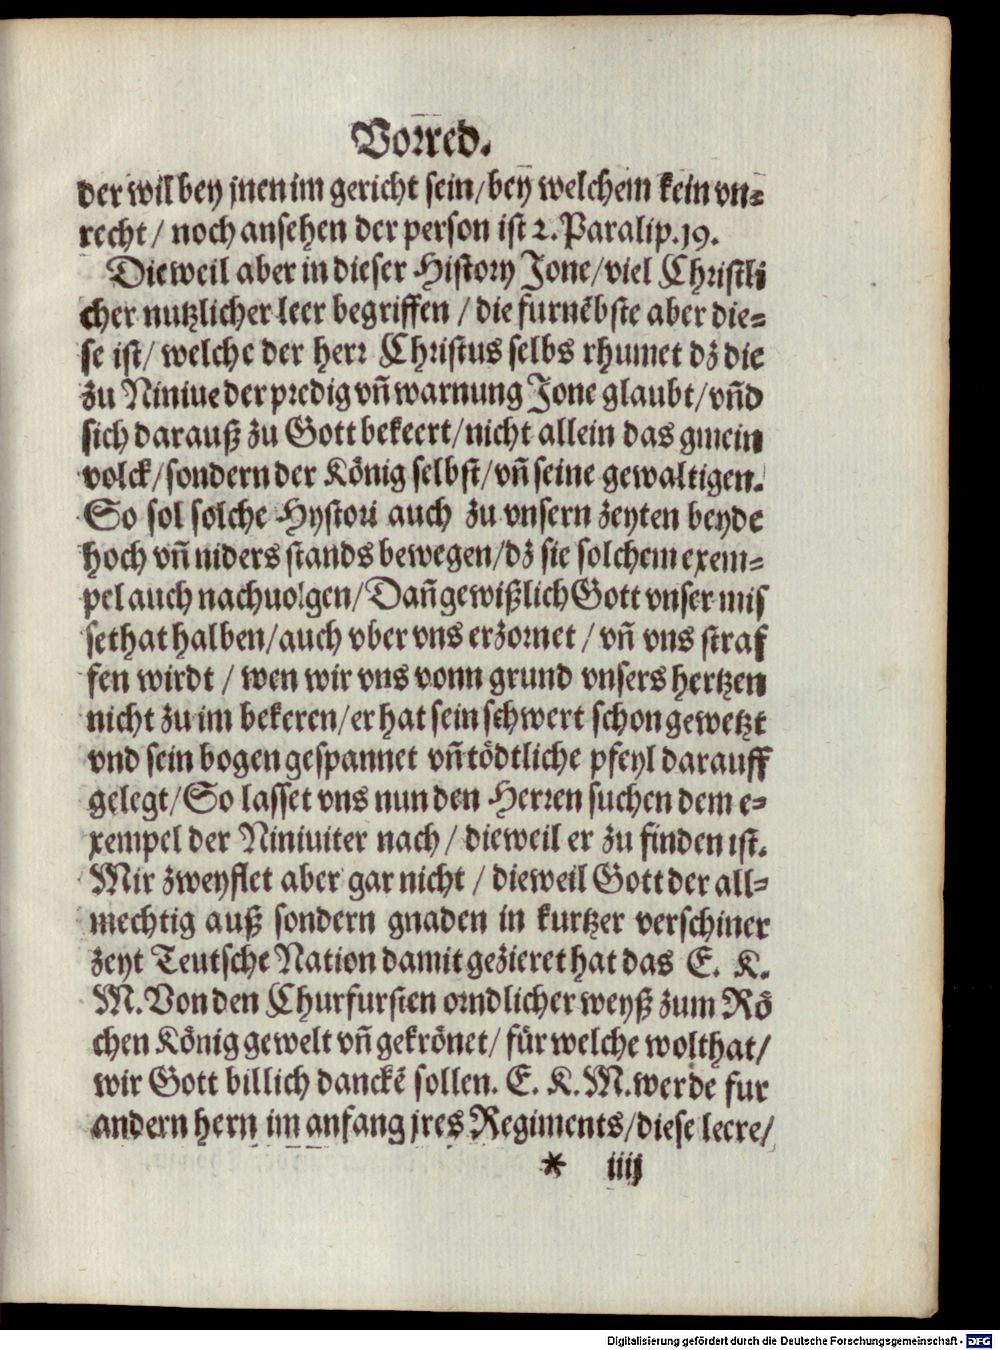 Vorred.
der wil bey jnen im gericht sein/bey welchem kein vn⸗
recht/ noch ansehen der person ist 2. Paralip.19.
Dieweil aber in dieser History Jone/viel Christli
cher nutzlicher leer begriffen / die furnẽbste aber die⸗
se ist/ welche der herr Christus selbs rhumet dz die
zu Niniue der predig vñ warnung Jone glaubt/vñd
sich darauß zu Gott bekeert/nicht allein das gmein
volck/sondern der König selbst/vñ seine gewaltigen.
So sol solche Hystori auch zu vnsern zeyten beyde
hoch vñ niders stands bewegen/dz sie solchem exem⸗
pel auch nachuolgen/Dañ gewißlich Gott vnser mis
sethat halben/auch vber vns erzornet / vñ vns straf
fen wirdt / wen wir vns vonn grund vnsers hertzen
nicht zu im bekeren/er hat sein schwert schon gewetzt
vnd sein bogen gespannet vñ tödtliche pfeyl darauff
gelegt/So lasset vns nun den Herren suchen dem e⸗
xempel der Niniuiter nach / dieweil er zu finden ist.
Mir zweyflet aber gar nicht / dieweil Gott der all⸗
mechtig auß sondern gnaden in kurtzer verschiner
zeyt Teutsche Nation damit gezieret hat das E. K.
M. Von den Churfursten orndlicher weyß zum Rö
chen König gewelt vñ gekrönet/ für welche wolthat/
wir Gott billich danckẽ sollen. E. K. M. werde fur
andern hern im anfang jres Regiments/diese leere/
* iiij
Digitalisierung gefördert durch die Deutsche Forschungsgemeinschaft - DFG